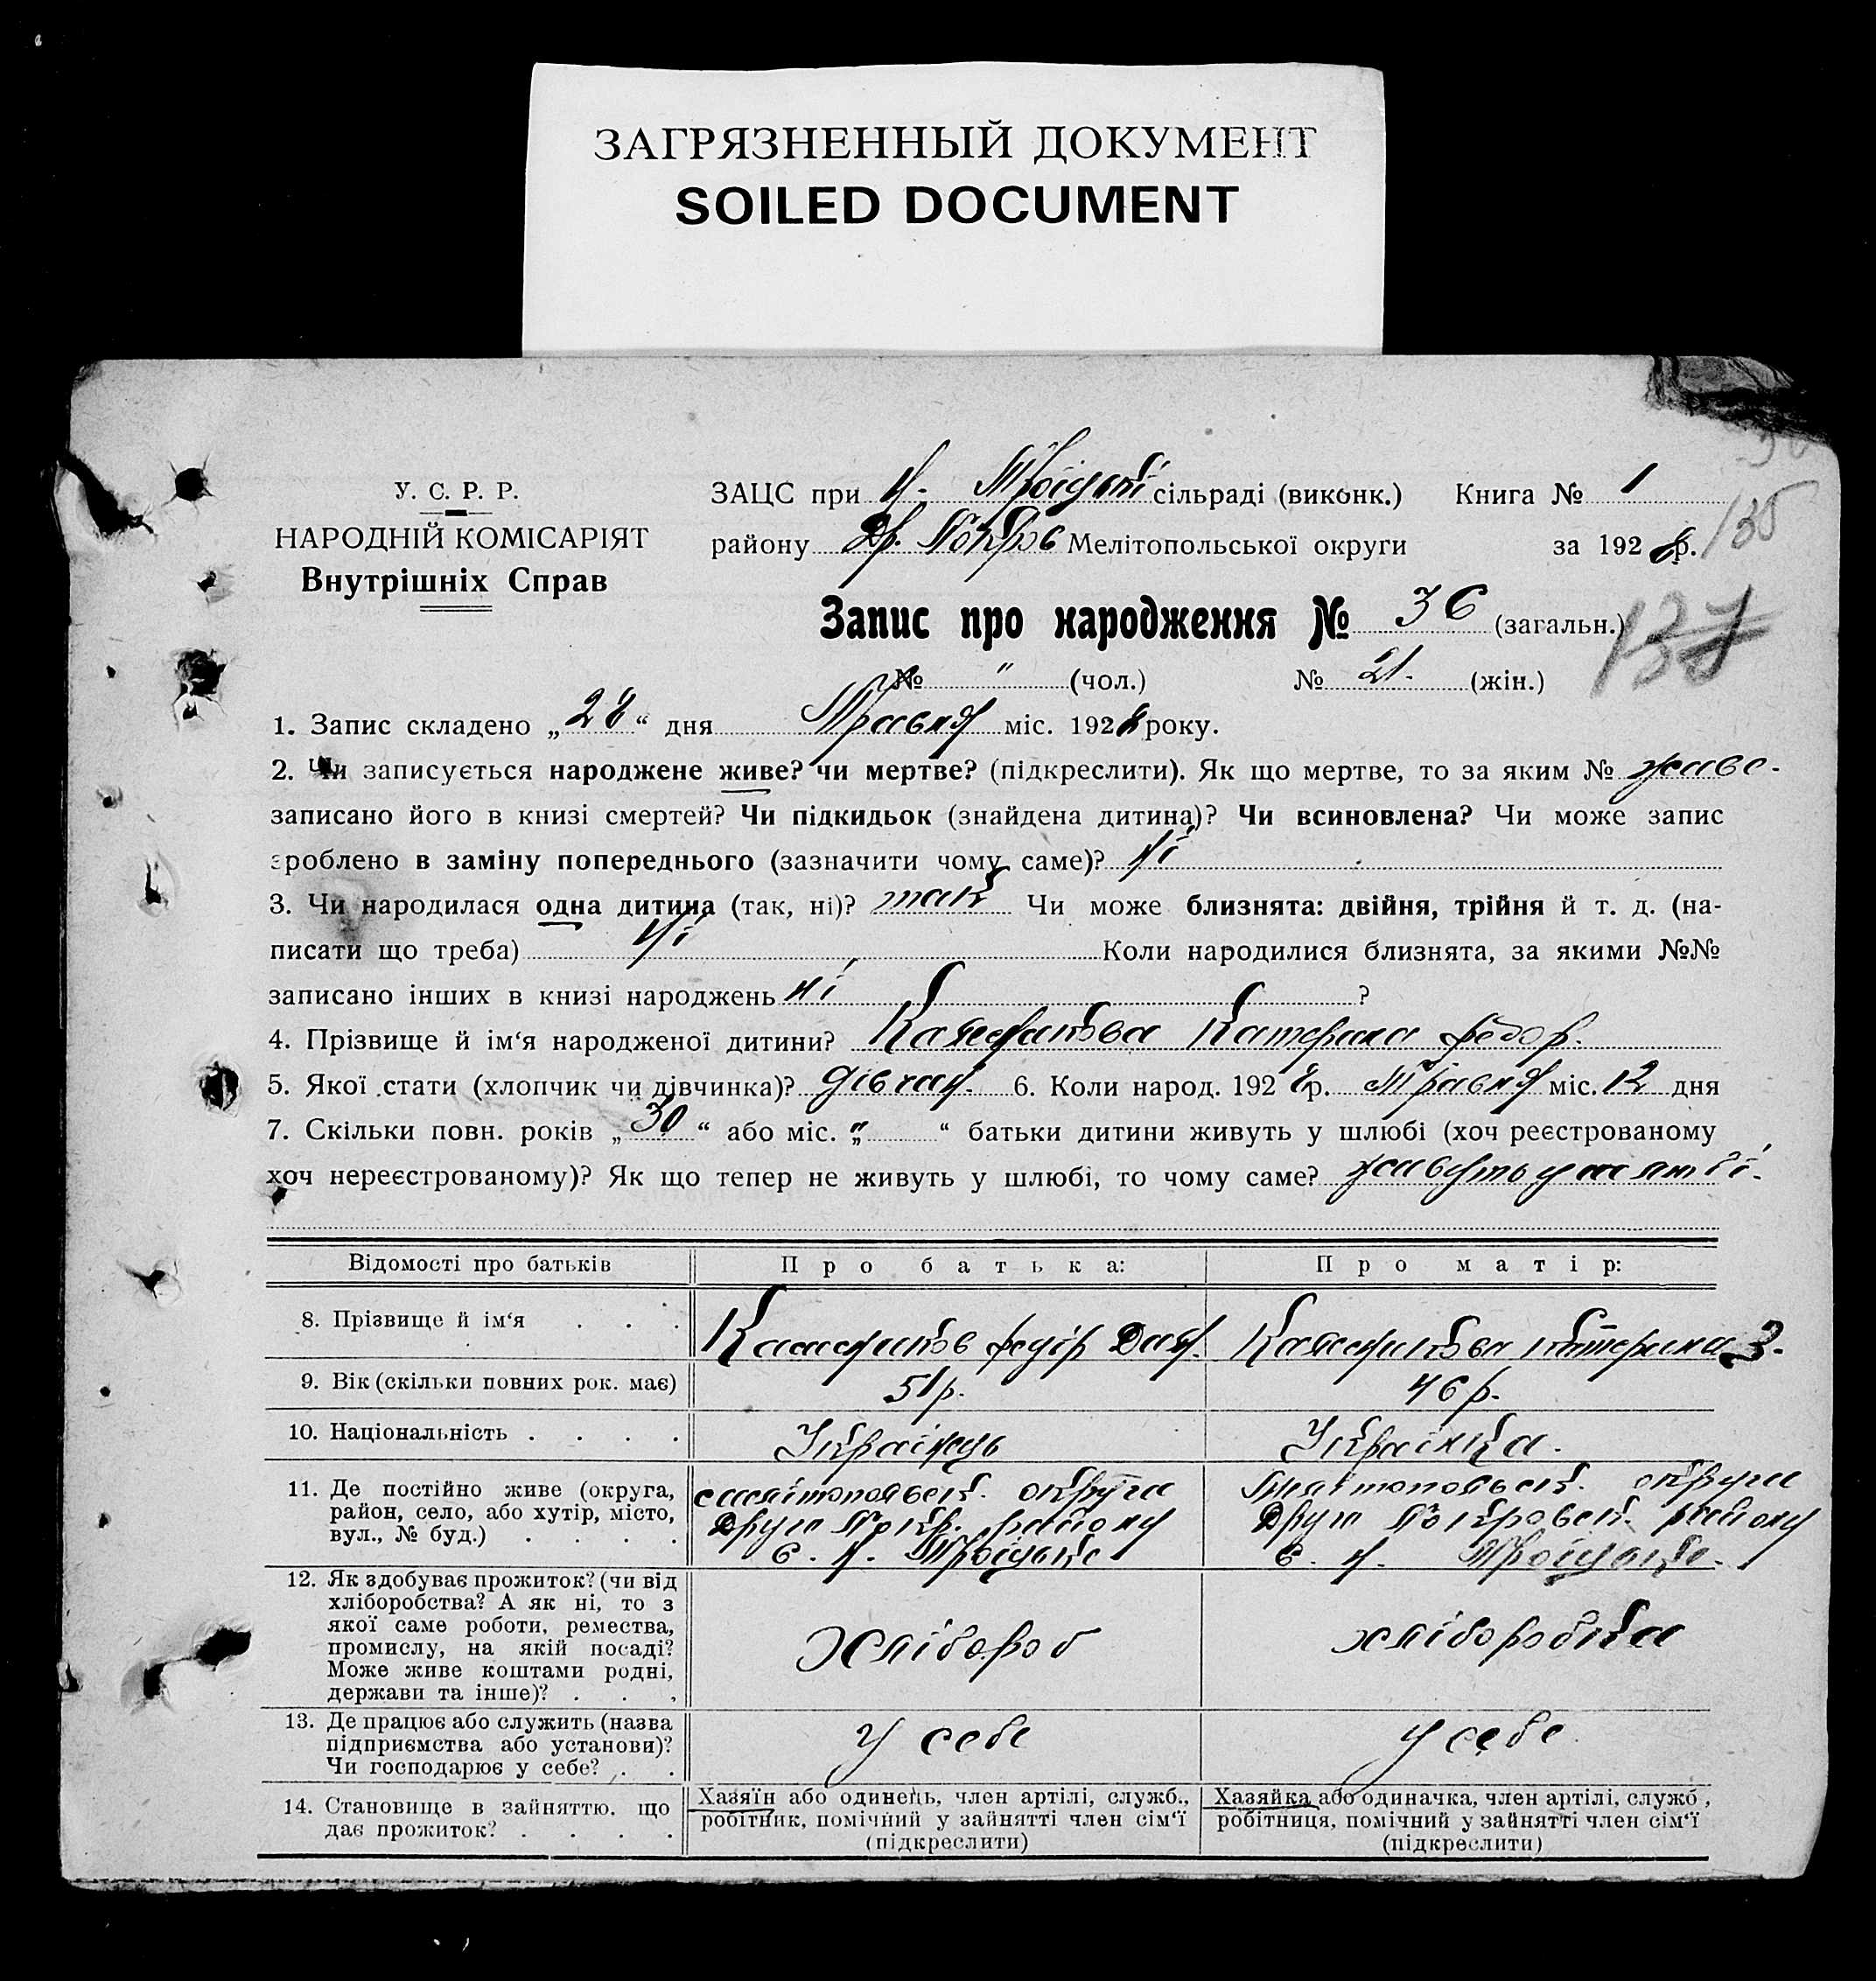 ЗАГРЯЗНЕННЫЙ ДОКУМЕНТ
SOILED DOCUMENT
У. С. Р. Р.
НАРОДНІЙ КОМІСАРІЯТ
Внутрішніх Справ
ЗАЦС при Н. Троїцькі сільраді (виконк.) Книга № 1
району Др. Покров Мелітопольської округи за 1928 р. 135
Запис про народження № 36 (загальн.) 137
№ " (чол.) № 21. (жін.)
1. Запис складено „28“ дня Травня міс. 1928 року.
2. Чи записується народжене живе? чи мертве? (підкреслити). Як що мертве, то за яким № живе-
записано його в книзі смертей? Чи підкидьок (знайдена дитина)? Чи всиновлена? Чи може запис
зроблено в заміну попереднього (зазначити чому саме)? ні
3. Чи народилася одна дитина (так, ні)? так Чи може близнята: двійня, трійня й т. д. (на-
писати що треба) ні Коли народилися близнята, за якими №№
записано інших в книзі народжень ні ?
4. Прізвище й ім‘я народженої дитини? Катерина Федор.
5. Якої стати (хлопчик чи дівчинка)? дівчин. 6. Коли народ. 1928 р. Травня міс. 12 дня
7. Скільки повн. років „30“ або міс. „ “ батьки дитини живуть у шлюбі (хоч реєстрованому
хоч нереєстрованому)? Як що тепер не живуть у шлюбі, то чому саме? живуть у
Відомості про батьків Про батька: Про матір:
8. Прізвище й ім‘я . . . Федір Катерина З.
9. Вік (скільки повних рок. має) 51 р. 46 р.
10. Національність . . . . Українець Українка.
11. Де постійно живе (округа, мелітопольськ. округи Мелітопольськ. округи
район, село, або хутір, місто, Друго Покр. району Друго Покровськ. району
вул., № буд.) . . . . с. Н. Троїцьке с. Н. Троїцьке.
12. Як здобуває прожиток? (чи від
хліборобства? А як ні, то з
якої саме роботи, ремества, хлібороб хліборобка
промислу, на якій посаді?
Може живе коштами родні,
держави та інше)? . . .
13. Де працює або служить (назва
підприємства або установи)? У себе у себе.
Чи господарює у себе? . .
14. Становище в зайняттю, що Хазяїн або одинець, член артілі, служб., Хазяйка або одиначка, член артілі, служб.,
дає прожиток? . . . . робітник, помічний у зайнятті член сім‘ї робітниця, помічний у зайнятті член сім‘ї
(підкреслити) (підкреслити)